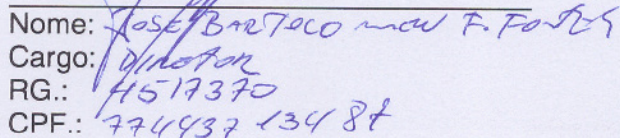 Nome: JOSE BARTOCO F. FONTES
Cargo: Diretor
RG.: 4517370
CPF.: 774437 134 87